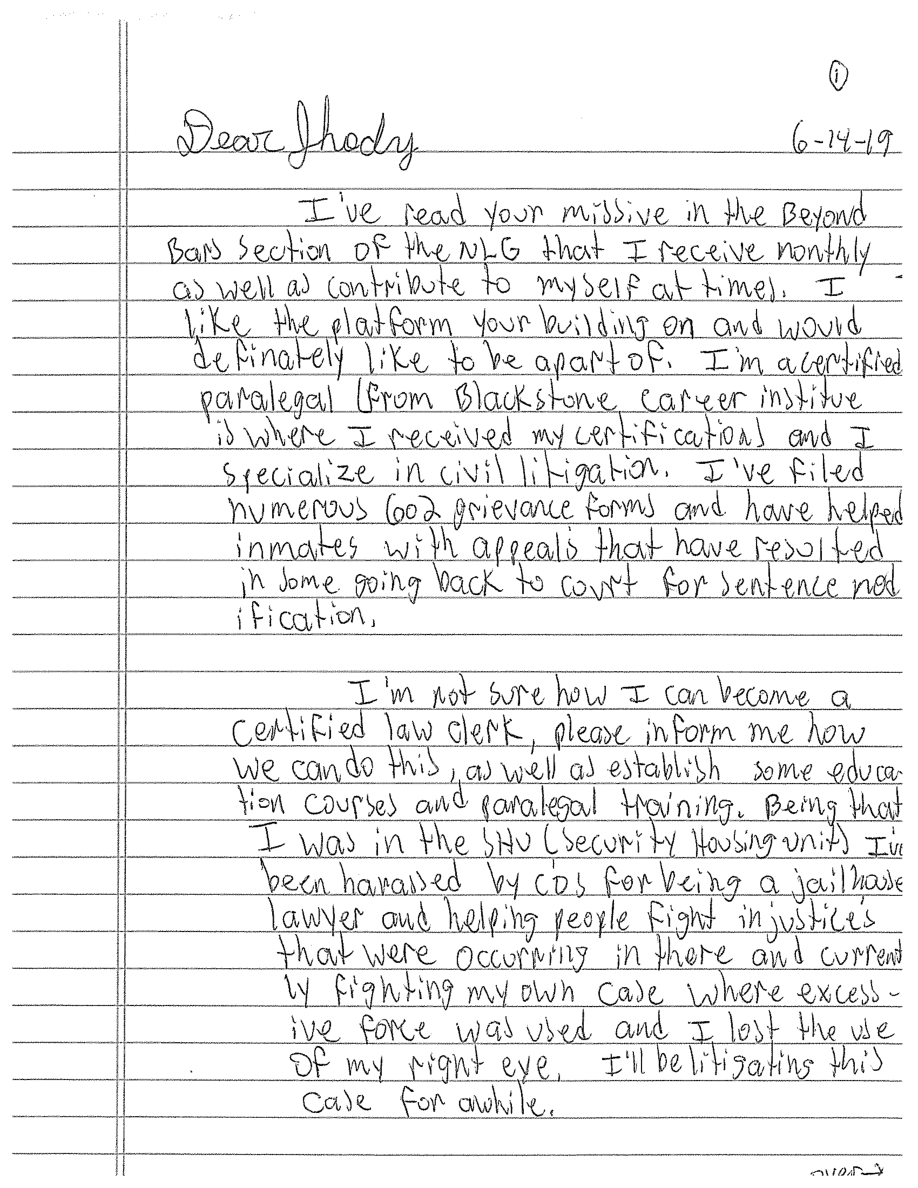 ①
Dear Jhody 6-14-19
I've read your missive in the Beyond
Bars section of the NLG that I receive monthly
as well as contribute to myself at times. I
like the platform your building on and would
definately like to be apart of. I'm a certified
paralegal (from Blackstone career institue
is where I received my certification) and I
specialize in civil litigation. I've filed
numerous 602 grievance forms and have helped
inmates with appeals that have resulted
in some going back to court for sentence mod
ification.
I'm not sure how I can become a
certified law clerk, please inform me how
we can do this, as well as establish some educa-
tion courses and paralegal training. Being that
I was in the SHU (Security Housing unit) I've
been harassed by CO's for being a jailhouse
lawyer and helping people fight injustices
that were occurring in there and current
ly fighting my own case where excess-
ive force was used and I lost the use
of my right eye. I'll be litigating this
case for awhile.
over→